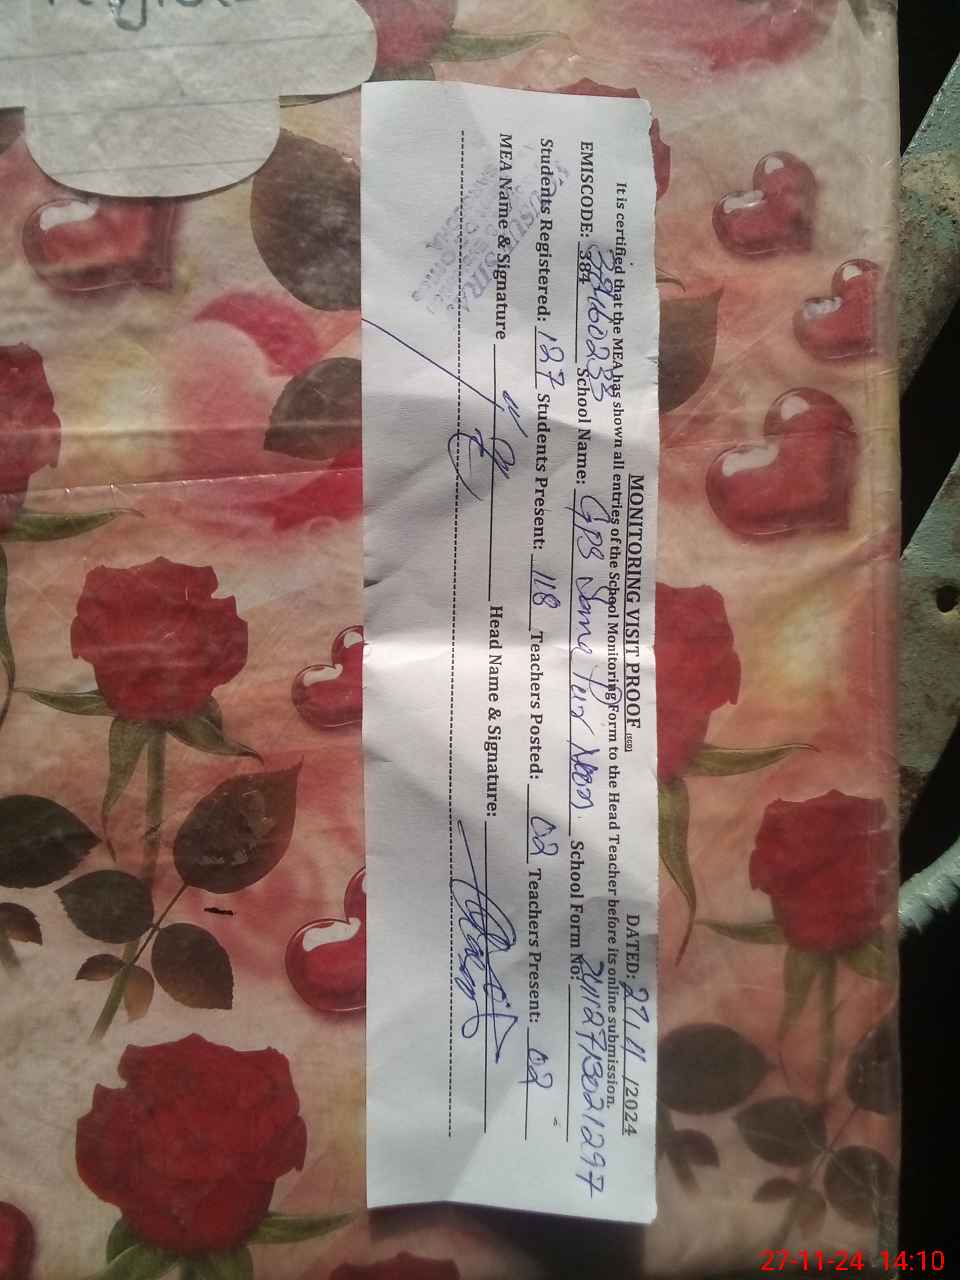 MONITORING VISIT PROOF DATED: 27.11/2024
It is certified that the MEA has shown all entries of the School Monitoring Form to the Head Teacher before its online submission.
EMISCODE: 384 38460233 School Name: GPS Noon School Form No: 24112713021297
Students Registered: 127 Students Present: 118 Teachers Posted: 02 Teachers Present: 02
MEA Name & Signature Head Name & Signature:
27-11-24 14:10